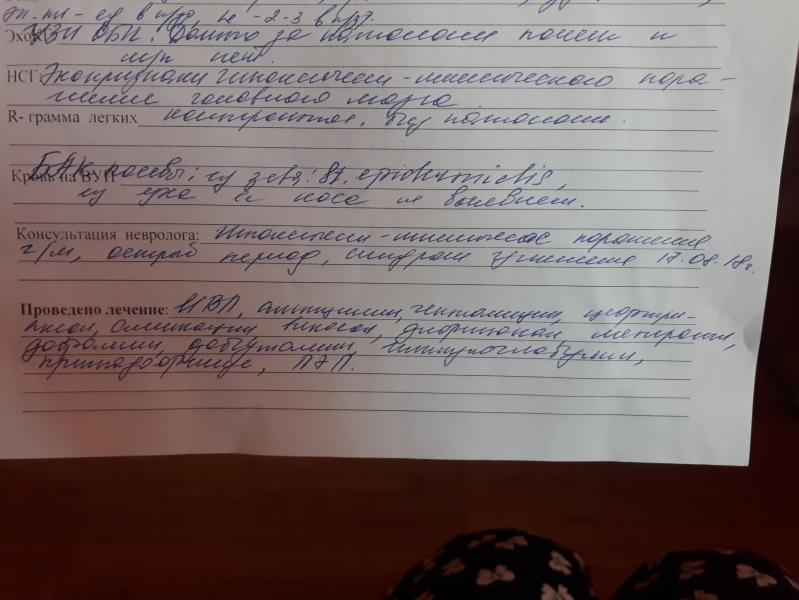 эп. пл - ед в п/зр, ле - 2-3 в п/зр.
Эхо УЗИ ОБП: Данных за патологию почек и
м/п нет.
НСГ: Эхопризнаки гипоксически-ишемического пора-
жения головного мозга
R- грамма легких контрактная, без патологии.
Кровь на ВУИ БАК посевы: из зева: St. epidermidis,
из уха и носа не выявлен.
Консультация невролога: Гипоксически-ишемическое поражение
г/м, острый период, синдром угнетения 17.08.18г.
Проведено лечение: ИВЛ, ампициллин, гентамицин, цефтри-
аксон, викасол, дофамин, добутамин, иммуноглобулин,
ПЭП.